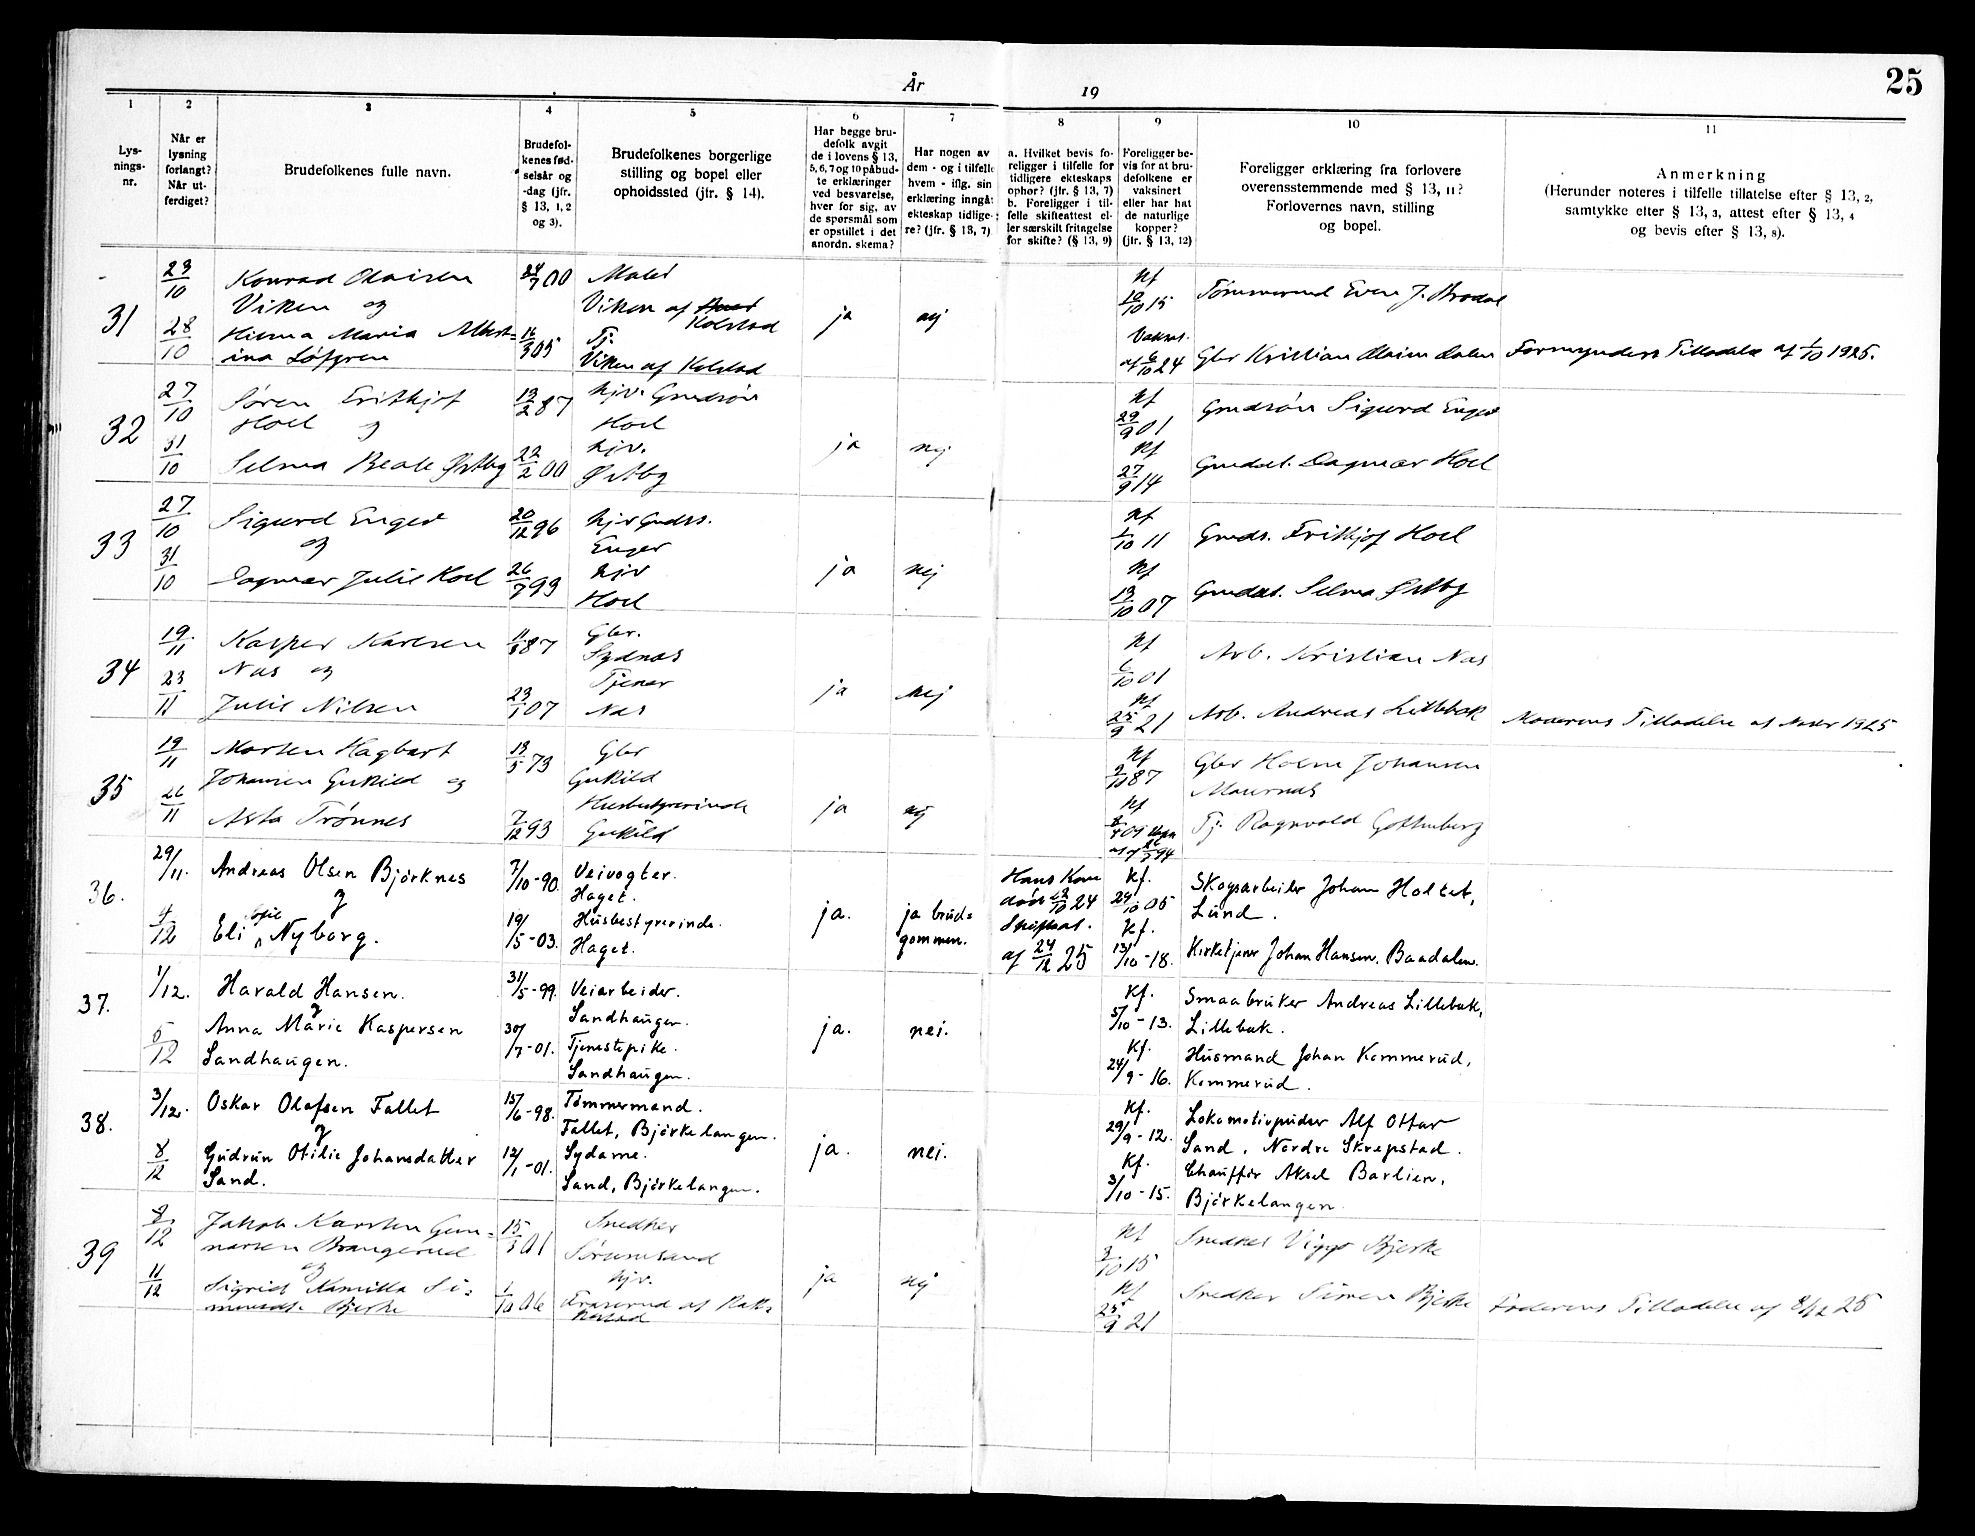 25
År 19
1 2 3 4 5 6 7 8 9 10 11
Lys-
nings-
nr.
Når er
lysning
forlangt?
Når ut-
ferdiget?
Brudefolkenes fulle navn.
Brudefol-
kenes fød-
selsår og
-dag (jfr.
§ 13, 1, 2
og 3).
Brudefolkenes borgerlige
stilling og bopel eller
opholdssted (jfr. § 14).
Har begge bru-
defolk avgit
de i lovens § 13,
5, 6, 7 og 10 påbud-
te erklæringer
ved besvarelse,
hver for sig, av
de spørsmål som
er opstillet i det
anordn. skema?
Har nogen av
dem - og i tilfelle
hvem - iflg. sin
erklæring inngåt
ekteskap tidlige-
re? (jfr. § 13, 7)
a. Hvilket bevis fo-
religger i tilfelle for
tidligere ekteskaps
ophør? (jfr. § 13, 7)
b. Foreligger i til-
felle skifteattest el-
ler særskilt fritagelse
for skifte? (§ 13, 9)
Foreligger be-
vis for at bru-
defolkene er
vaksinert
eller har hat
de naturlige
kopper?
(jfr. § 13, 12)
Foreligger erklæring fra forlovere
overensstemmende med § 13, 11?
Forlovernes navn, stilling
og bopel.
Anmerkning
(Herunder noteres i tilfelle tillatelse efter § 13, 2,
samtykke efter § 13, 3, attest efter § 13, 4
og bevis efter § 13, 8).
31
23/10
28/10
Konrad Olaisen
Viken og
Hilma Maria Albert=
ina Løfgren
00
16/3 05
Maler
Viken af
Kolstad
Tj.
Viken af Kolstad
ja
nej
Kf
10/10 15
Vakns.
af 6/10 24
Tømmermd Even J.
Gbr Kristian Olaisen Dalen
Formynders Tilladelse af 1/10 1925.
32
27/10
31/10
Søren Frithjof
Hoel og
Selma Beate Østby
13/2 87
22/2 00
hjv. Grudsøn
Hoel
hjv.
Østby
ja
nej
Kf
29/9 01
Kf
27/9 14
Grudsøn Sigurd Enger
Gruddat. Dagmar Hoel
33
27/10
31/10
Sigurd Enger
og
Dagmar Julie Hoel
20/12 96
26/7 93
hjv Grudss.
Enger
hjv
Hoel
ja
nej
Kf
1/10 11
Kf
13/10 07
Gruds. Frithjof Hoel
Gruddat. Selma Østby
34
19/11
23/11
Kasper Karlsen
Nas og
Julie Nilsen
87
23/1 07
Gbr.
Sydnas
Tjener
Nas
ja
nej
Kf
6/10 01
Kf
25/9 21
Arb. Kristian Nas
Arb. Andreas Lillebak
Moderens Tilladelse af Novbr 1925
35
19/11
26/11
Morten Hagbart
Johansen Gukild og
Asta Trønnes
13/5 73
7/12 93
Gbr
Gukild
Husbestyrerinde
Gukild
ja
nej
Kf
2/10 87
Kf
Gbr Holm Johansen
Maurnas
Tj. Ragnvald Gothenberg
36.
29/11.
4/12
Andreas Olsen Björknes
og
Eli Nyborg.
7/10-90.
19/5-03.
Veivogter.
Haget.
Husbestyrerinde.
Haget.
ja.
ja brud=
gommen.
Hans Kone
död 24
Skifteat.
af 24/12 25
Kf.
29/10 05
Kf.
13/10-18.
Skogsarbeider Johan Holtet,
Lund.
Kirketjener Johan Hansen, Baadalen.
37.
1/12.
5/12
Harald Hansen.
og
Anna Marie Kaspersen
Sandhaugen.
31/5-99.
30/7-01.
Veiarbeider.
Sandhaugen.
Tjenestepike.
Sandhaugen.
ja.
nei.
Kf.
5/10-13.
Kf.
24/9-16.
Smaabruker Andreas Lillebak,
Lillebak.
Husmand Johan Kommerud,
Kommerud.
38.
3/12.
8/12
Oskar Olafsen Fallet
og
Gudrun Otilie Johansdatter
Sand.
15/6-98.
12/1-01.
Tømmermand.
Fallet, Björkelangen.
Sydame.
Sand, Björkelangen.
ja.
nei.
Kf.
29/9-12.
Kf.
3/10-15.
Lokomotivpudser Alf Ottar
Sand, Nordre Skrepstad.
Chauffør Aksel Barlien,
Björkelangen.
39
8/12
11/12
Jakob Karsten Gun=
narsen Brangerud
og
Sigrid Kamilla Si=
monsdt. Bjerke
15/3 01
1/10 06
Snedker
Sørumsand
hjv.
ja
nej
Kf
3/10 15
Kf
25/9 21
Snedker Viggo Bjerke
Snedker Simen Bjerke
Faderens Tilladelse af 8/12 25